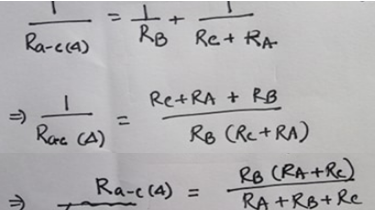 1/Ra-c(Δ) = 1/RB + 1/(Rc + RA)
⇒ 1/Ra-c (Δ) = (Rc+RA + RB)/(RB (Rc+RA))
⇒ Ra-c(Δ) = (RB (RA+Rc))/(RA+RB+Rc)